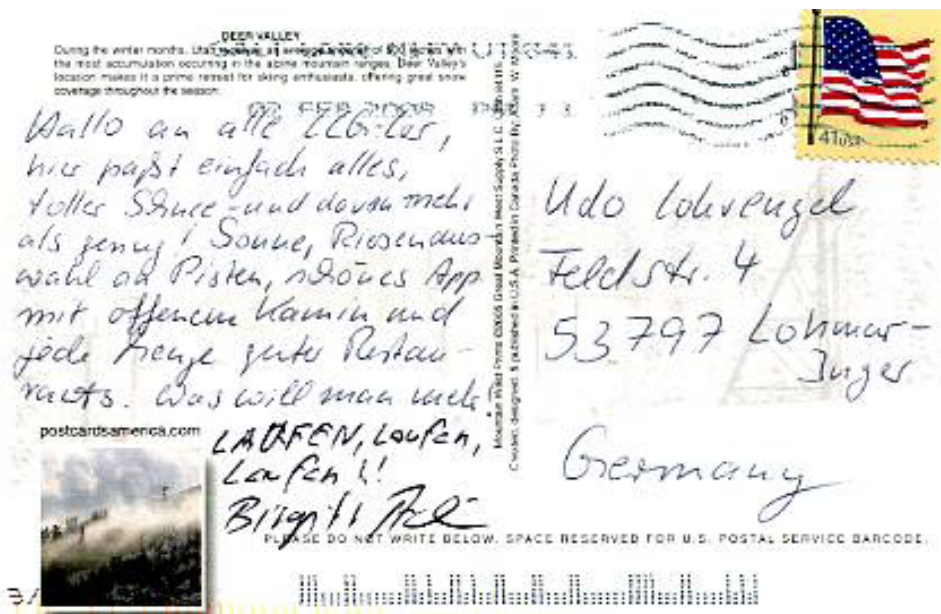 DEER VALLEY
During the winter months, Utah of 500 inches with
the most accumulation occurring in the alpine mountain ranges. Deer Valley's
location makes it a prime retreat for skiing enthusiasts, offering great snow
coverage throughout the season.
02 FEB 2008 PM
Hallo an alle
hier paßt einfach alles,
toller Schnee - und davon mehr
als genug! Sonne, Riesenaus-
wahl an Pisten, schönes App
mit offenem Kamin und
jede Menge guter Restau-
rants. Was will man mehr!
LAUFEN, Laufen,
Laufen!!
Birgitt
postcardsamerica.com
Created, designed, & published in U.S.A. Printed in Canada
41USA
Udo Lohrengel
Feldstr. 4
53797 Lohmar-
Inger
Germany
PLEASE DO NOT WRITE BELOW. SPACE RESERVED FOR U.S. POSTAL SERVICE BARCODE.